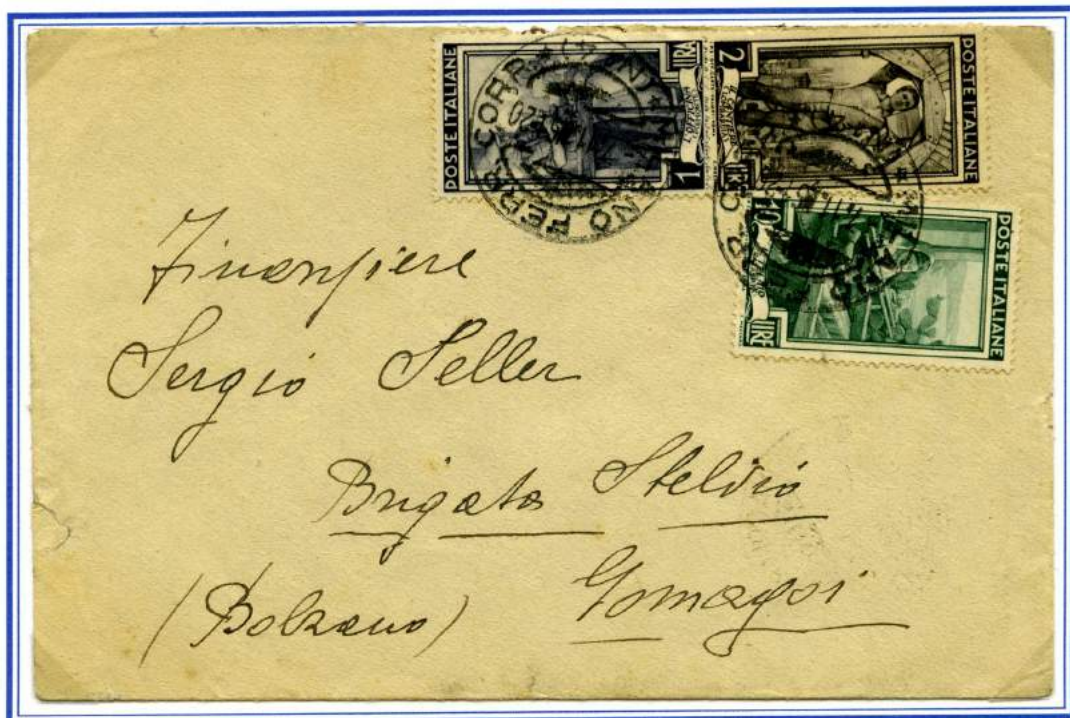 POSTE ITALIANE
1 LIRA
POSTE ITALIANE
2 LIRE
POSTE ITALIANE
10 LIRE
MILANO FERR. CORR.
Finanziere
Sergio Seller
Brigata Stelvio
(Bolzano) Gomagoi